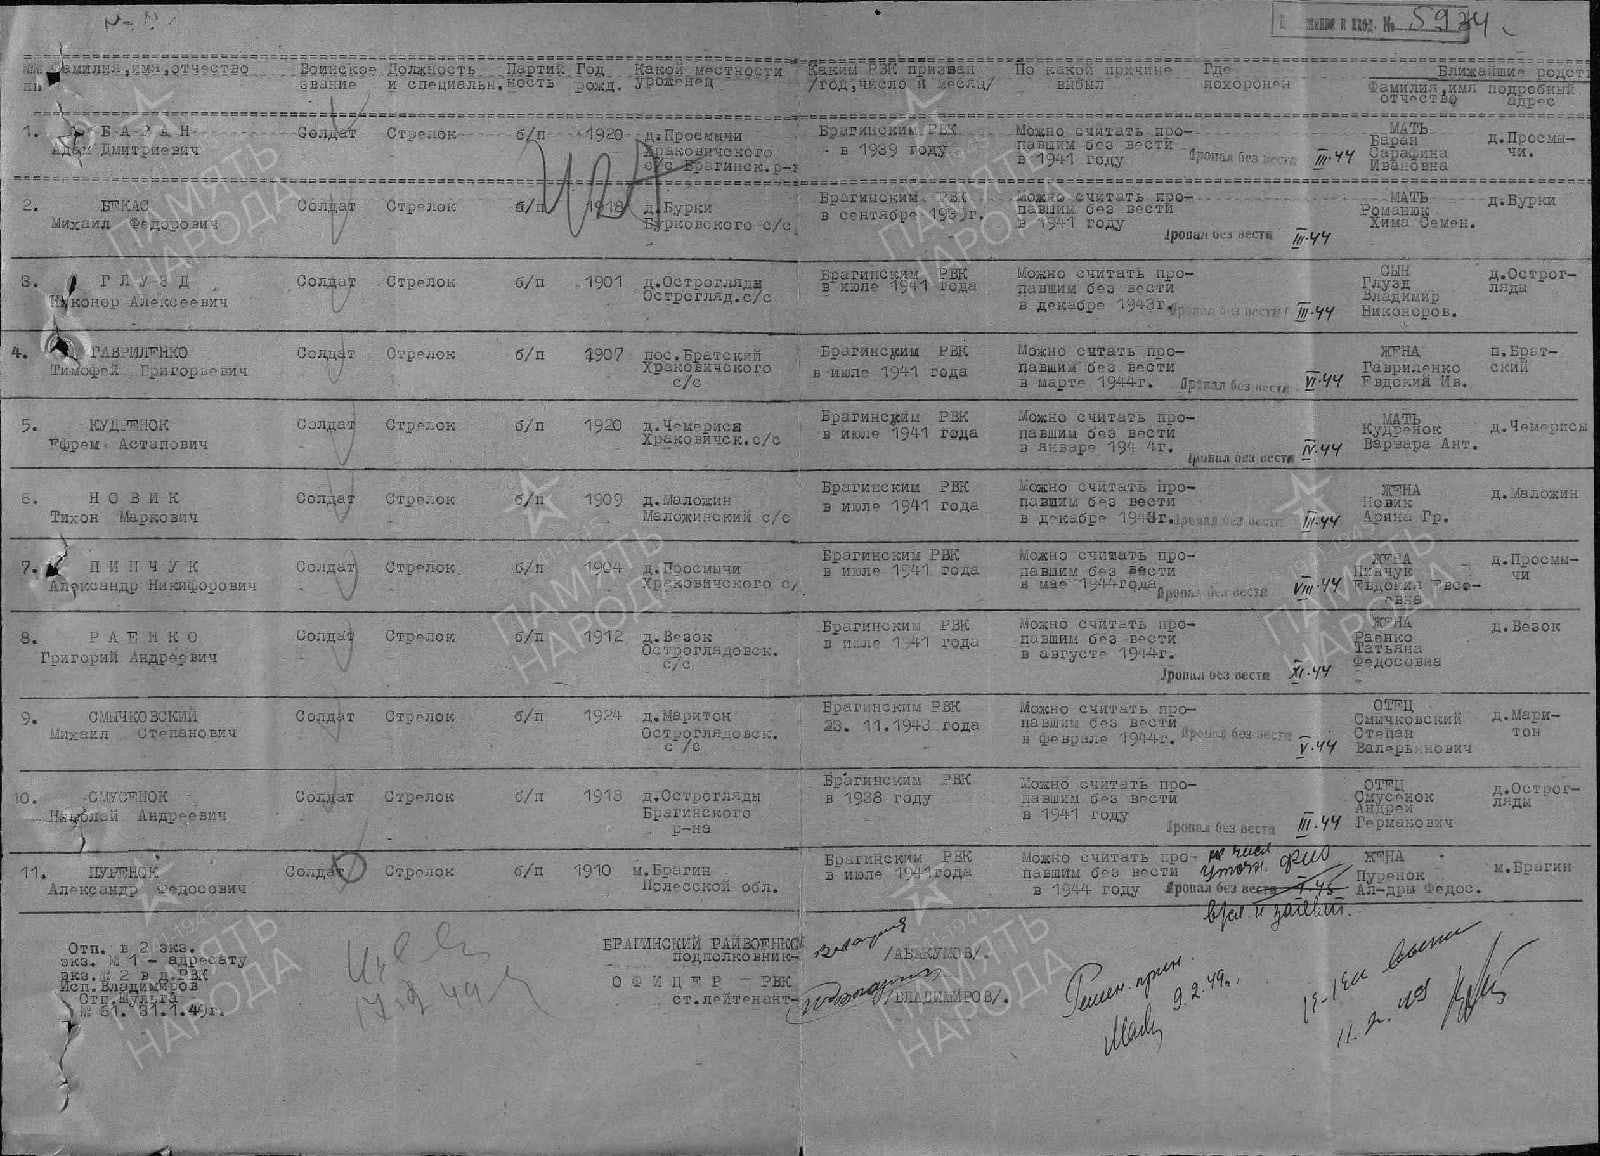 жение к вход. № 5934.
№№ Фамилия,имя,отчество Воинское звание Должность и специальн. Партийность Год рожд. Какой местности уроженец Каким РВК призван /год,число и месяц/ По какой причине выбыл Где похоронен Ближайшие родст
Фамилия,имя отчество подробный адрес
1. БАРАН Солдат Стрелок б/п 1920 д.Просмычи Брагинским РВК Можно считать про- МАТЬ д.Просмы-
Адам Дмитриевич Храковичского в 1939 году павшим без вести Баран чи.
с/с Брагинск.р- в 1941 году Пропал без вести III-44 Сарафина
Ивановна
2. БЕКАС Солдат Стрелок б/п 1918 д.Бурки Брагинским РВК Можно считать про- МАТЬ д.Бурки
Михаил Федорович Бурковского с/с в сентябре 1939г. павшим без вести Романюк
в 1941 году Хима Семен.
Пропал без вести III-44
3. ГЛУЗД Солдат Стрелок б/п 1901 д.Острогляды Брагинским РВК Можно считать про- СЫН д.Острог-
Никонор Алексеевич Острогляд.с/с в июле 1941 года павшим без вести Глузд ляды
в декабре 1943г. Пропал без вести III-44 Владимир
Никоноров.
4. ГАВРИЛЕНКО Солдат Стрелок б/п 1907 пос.Братский Брагинским РВК Можно считать про- ЖЕНА п.Брат-
Тимофей Григорьевич Храковичского в июле 1941 года павшим без вести Гавриленко ский
с/с в марте 1944г. Пропал без вести VI-44 Евдокий Ив.
5. КУДРЕНОК Солдат Стрелок б/п 1920 д.Чемерися Брагинским РВК Можно считать про- МАТЬ д.Чемерисы
Ефрем Астапович Храковичск.с/с в июле 1941 года павшим без вести Кудренок
в январе 1944г. Пропал без вести IV-44 Варвара Ант.
6. НОВИК Солдат Стрелок б/п 1909 д.Маложин Брагинским РВК Можно считать про- ЖЕНА д.Маложин
Тихон Маркович Маложинский с/с в июле 1941 года павшим без вести Новик
в декабре 1943г. Пропал без вести III-44 Арина Гр.
7. ПИНЧУК Солдат Стрелок б/п 1904 д.Просмычи Брагинским РВК Можно считать про- ЖЕНА д.Просмы-
Александр Никифорович Храковичского с/ в июле 1941 года павшим без вести Пинчук чи
в мае 1944года Пропал без вести VIII-44 Евдокия Евсе-
евна
8. РАЕНКО Солдат Стрелок б/п 1912 д.Везок Брагинским РВК Можно считать про- ЖЕНА д.Везок
Григорий Андреевич Остроглядовск. в июле 1941 года павшим без вести Раенко
с/с в августе 1944г. Татьяна
Пропал без вести XI-44 Федосовна
9. СМЫЧКОВСКИЙ Солдат Стрелок б/п 1924 д.Маритон Брагинским РВК Можно считать про- ОТЕЦ д.Мари-
Михаил Степанович Остроглядовск. 23. 11.1943 года павшим без вести Смычковский тон
с/с в феврале 1944г. Пропал без вести V-44 Степан
Валерьянович
10. СМУСЕНОК Солдат Стрелок б/п 1918 д.Острогляды Брагинским РВК Можно считать про- ОТЕЦ д.Острог-
Николай Андреевич Брагинского в 1938 году павшим без вести Смусенок ляды
р-на в 1941 году Андрей
Пропал без вести III-44 Германович
11. ПУРЕНОК Солдат Стрелок б/п 1910 м.Брагин Брагинским РВК Можно считать про- ЖЕНА м.Брагин
Александр Федосович Полесской обл. в июле 1941года павшим без вести Пуренок
в 1944 году Пропал без вести I-45 Ал-дры Федос.
Отп. в 2 экз.
экз. № 1 - адресату
экз.№ 2 в д.РВК
Исп.Владимиров
Отп.Шульга
№ 61. 31.1.49г.
БРАГИНСКИЙ РАЙВОЕНКОМ
подполковник- /АБАКУМОВ/.
ОФИЦЕР РВК
ст.лейтенант- /ВЛАДИМИРОВ/.
9.2.49г.
ПАМЯТЬ НАРОДА
1941-1945